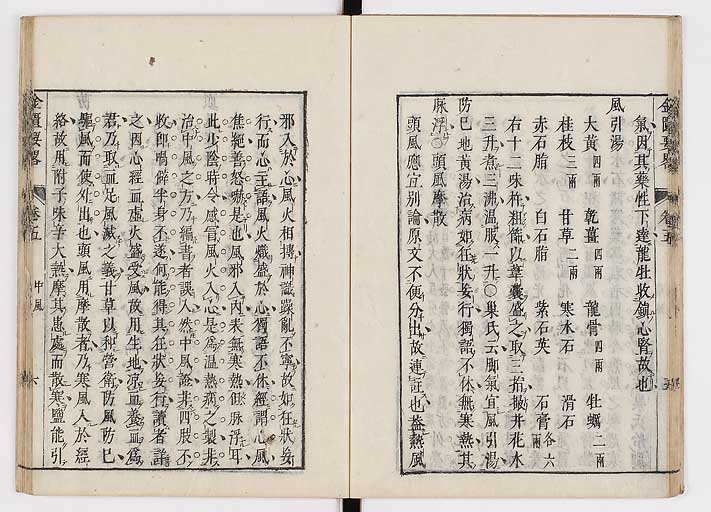 氣因其藥性下達龍牡收鎮心腎故也
風引湯
大黃四兩 乾薑四兩 龍骨四兩 牡蠣二兩
桂枝三兩 甘草二兩 寒水石 滑石
赤石脂 白石脂 紫石英 石膏各六兩
右十二味杵粗篩以韋囊盛之取三指撮井花水
三升煮三沸溫服一升○巢氏云脚氣宜風引湯
防已地黃湯治病如狂狀妄行獨語不休無寒熱其
脉浮○頭風摩散
頭風應宜別論原文不便分出故連註也蓋熱風
金匱要畧
邪入於心風火相摶神識躁亂不寧故如狂狀妄
行而心主語風火熾盛於心獨語不休經謂心風
焦絕善怒嚇是也風邪入內未無寒熱但脉浮耳
此少陰時令感冒風火入心是為溫熱病之製非
治中風之方乃編書者誤入然中風證非四肢不
收即喎僻半身不遂何能得其狂狀妄行讀者詳
之因心經血虛火盛受風故用生地涼血養血為
君乃取血足風滅之義甘草以和營衛防風防已
驅風而使外出也頭風用摩散者乃寒風入於經
絡故用附子味辛大熱摩其患處而散寒鹽能引
金匱要畧 卷五 中風 六